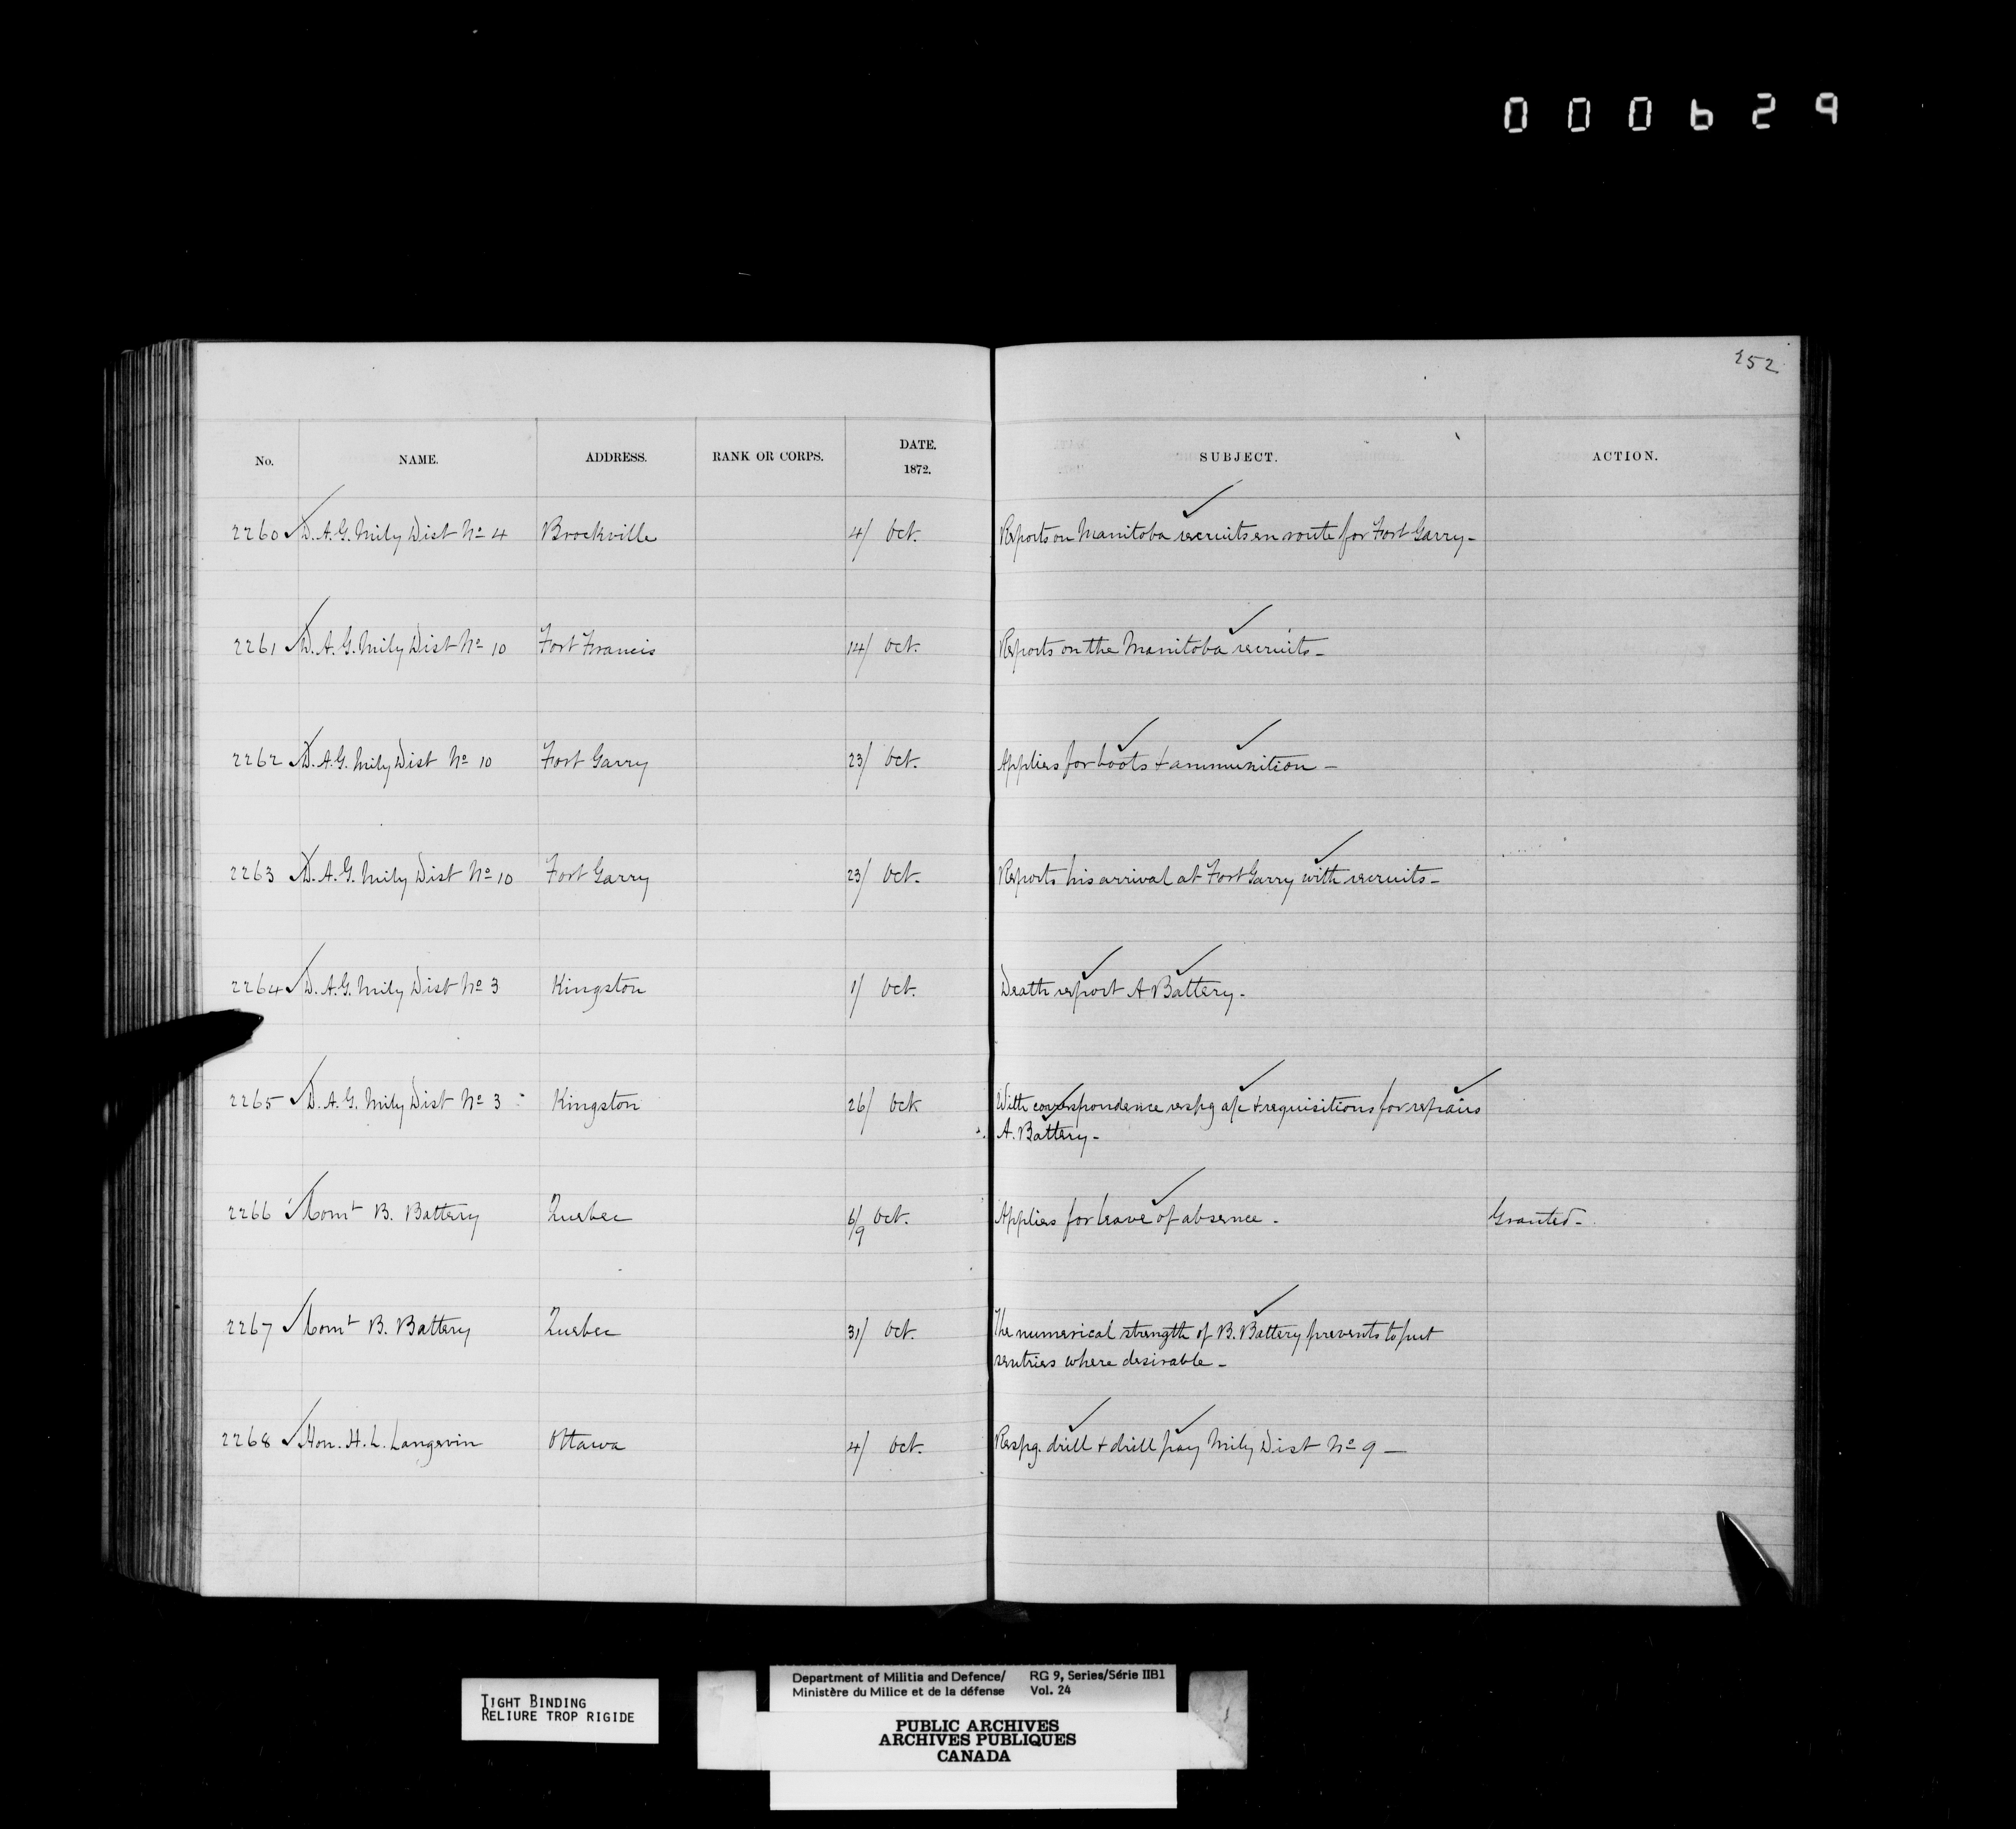 000629
252
No. NAME. ADDRESS. RANK OR CORPS. DATE. 1872. SUBJECT. ACTION.
2260 D. A. G. Mily Dist No 4 Brockville 4/ Oct. Reports on Manitoba recruits en route for Fort Garry -
2261 D. A. G. Mily Dist No 10 Fort Francis 14/ Oct. Reports on the Manitoba recruits -
2262 D. A. G. Mily Dist No 10 Fort Garry 23/ Oct. Applies for boots + ammunition -
2263 D. A. G. Mily Dist No 10 Fort Garry 23/ Oct. Reports his arrival at Fort Garry with recruits -
2264 D. A. G. Mily Dist No 3 Kingston 1/ Oct. Death report A Battery -
2265 D. A. G. Mily Dist No 3 Kingston 26/ Oct With correspondence respg a/c + requisitions for repairs
A. Battery -
2266 Comt B. Battery Quebec 6/9 Oct. Applies for leave of absence - Granted -
2267 Comt B. Battery Quebec 31/ Oct. The numerical strength of B. Battery prevents to put
sentries where desirable -
2268 Hon. H. L. Langevin Ottawa 4/ Oct. Respg. drill + drill pay Mily Dist No 9 -
TIGHT BINDING
RELIURE TROP RIGIDE
Department of Militia and Defence/ RG 9, Series/Série IIB1
Ministère du Milice et de la défense Vol. 24
PUBLIC ARCHIVES
ARCHIVES PUBLIQUES
CANADA